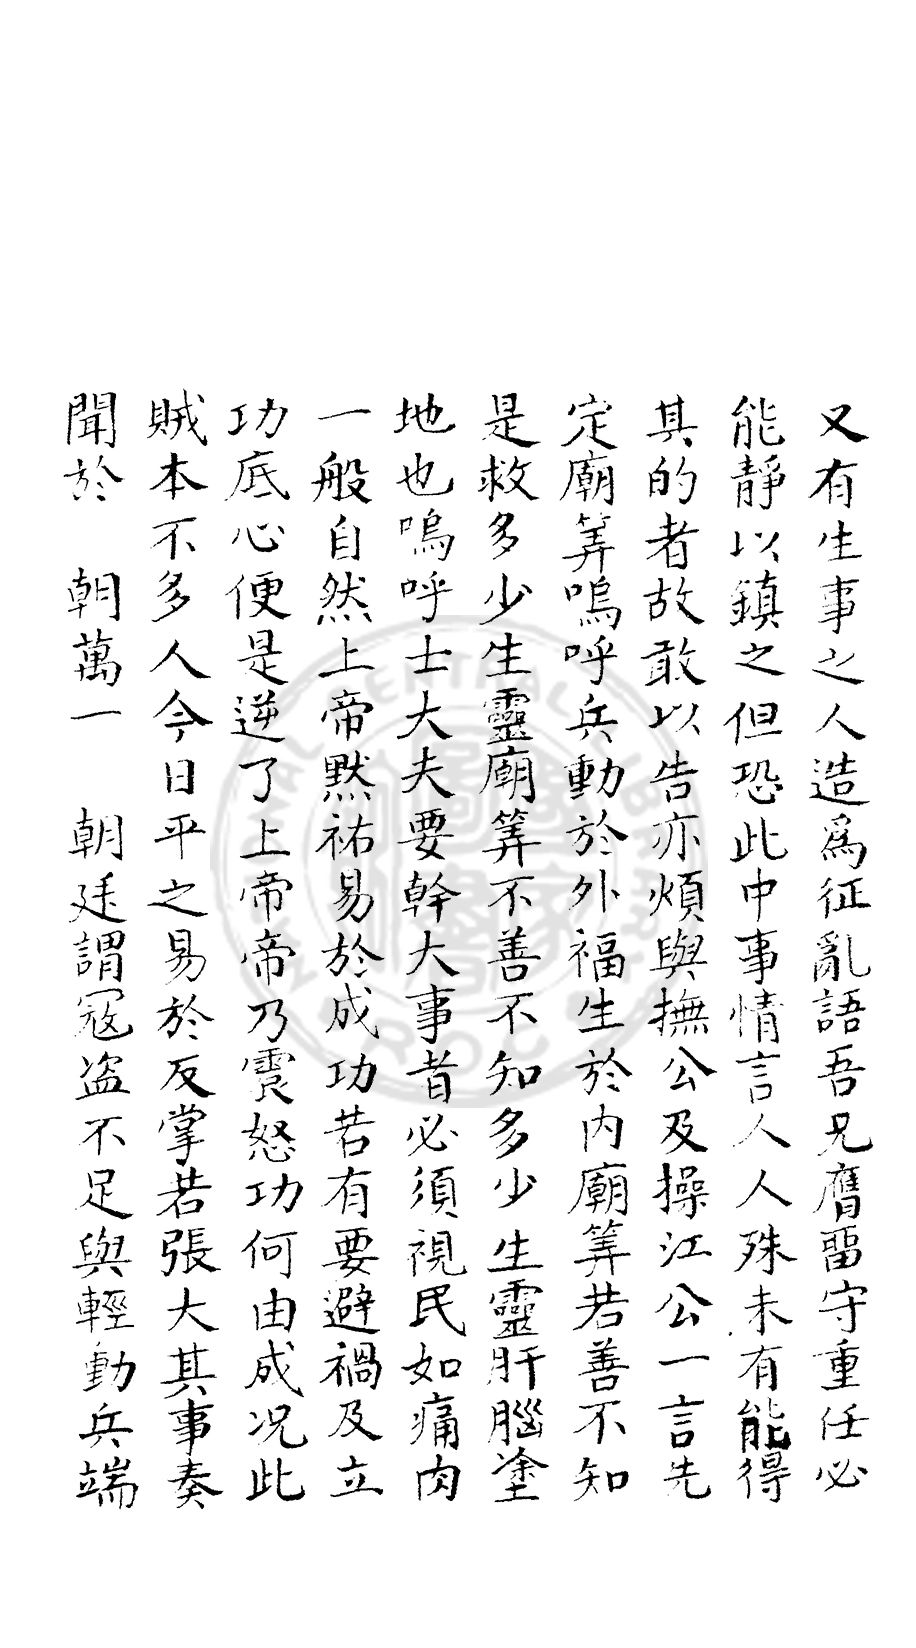 又有生事之人造為征亂語吾兄膺畱守重任必
能靜以鎮之但恐此中事情言人人殊未有能得
其的者故敢以告亦煩與撫公及操江公一言先
定廟筭嗚呼兵動於外福生於內廟筭若善不知
是救多少生靈廟筭不善不知多少生靈肝腦塗
地也嗚呼士大夫要幹大事者必須視民如痛肉
一般自然上帝默祐易於成功若有要避禍及立
功底心便是逆了上帝帝乃震怒功何由成况此
賊本不多人今日平之易於反掌若張大其事奏
聞於　朝萬一　朝廷謂寇盗不足與輕動兵端